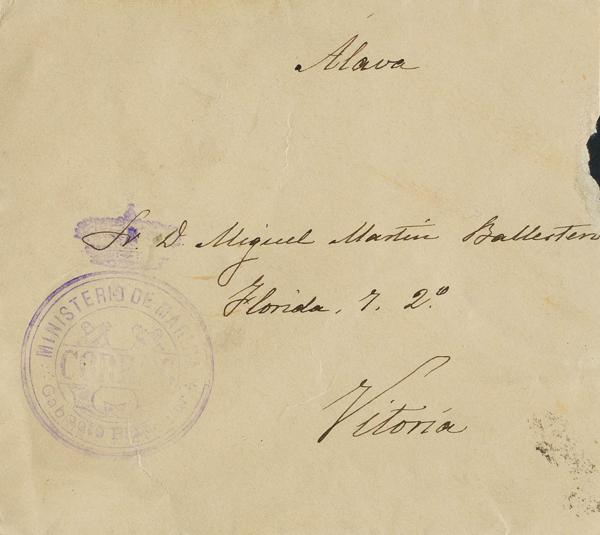 Alava
Sr. D. Miguel Martin Ballestero
Florida, 7, 2º
Vitoria
MINISTERIO DE MARINA
CORREOS